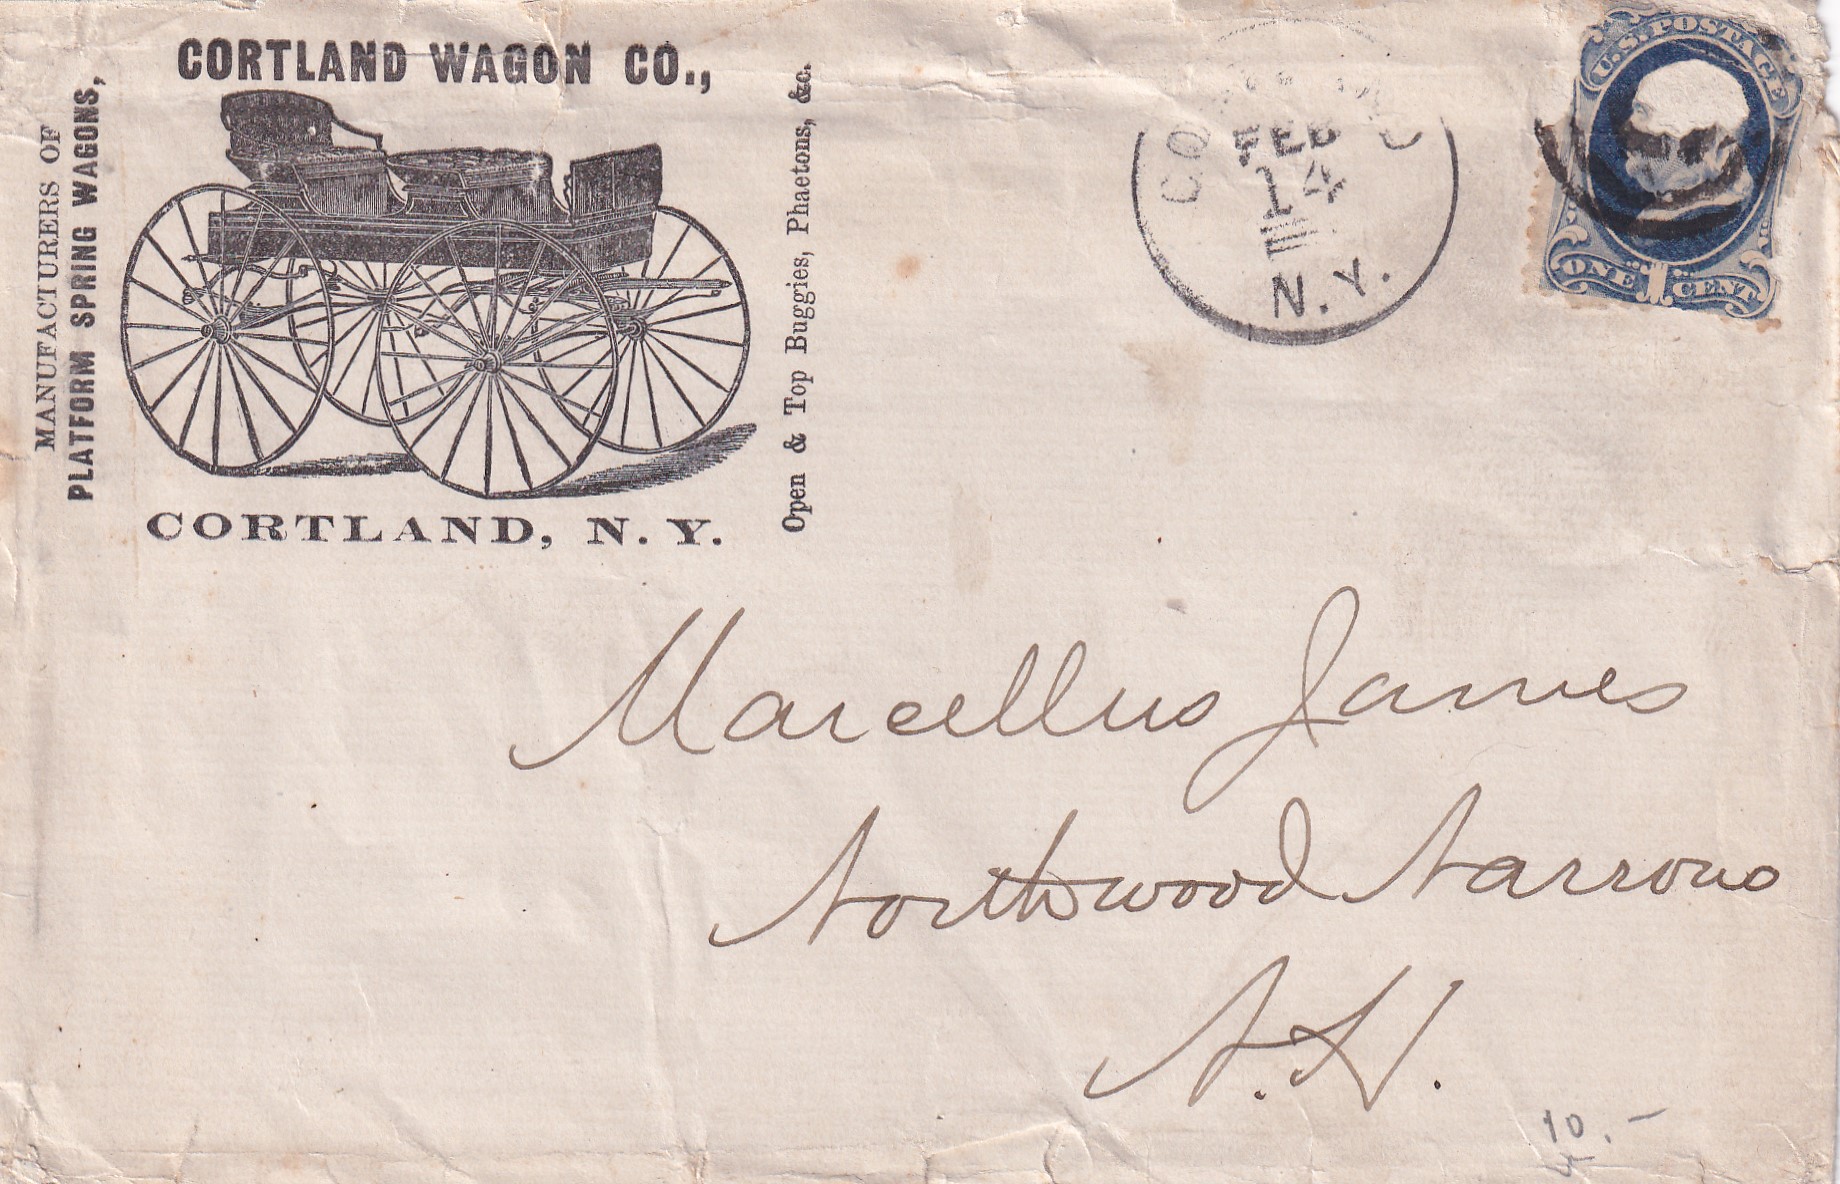 CORTLAND WAGON CO.,
MANUFACTURERS OF
PLATFORM SPRING WAGONS,
Open & Top Buggies, Phaetons, &c.
CORTLAND, N. Y.
FEB
14
N.Y.
U.S. POSTAGE
ONE 1 CENT
Marcellus James
Northwood Narrows
N.H.
10.-